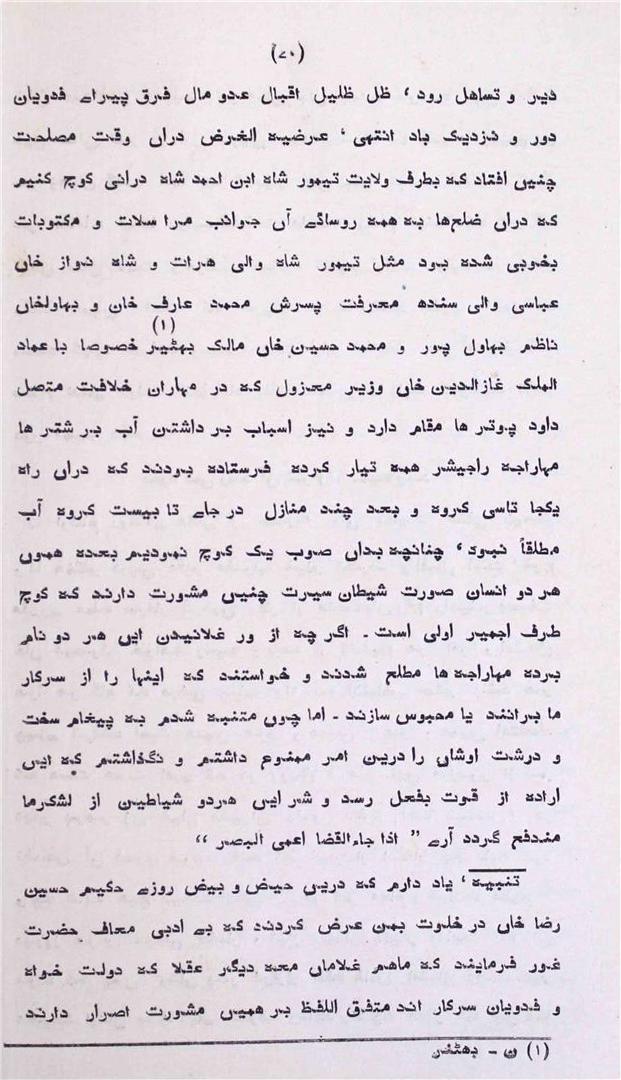 (۷۰)
دیر و تساهل رود، ظل ظلیل اقبال عدو مال فرق پیراے فدویان
دور و نزدیک باد انتهی، عرضیه الغرض دراں وقت مصلحت
چنیں افتاد که بطرف ولایت تیمور شاه ابن احمد شاه درانی کوچ کنیم
که دراں ضلعها به همه روسائے آں جوانب مراسلات و مکتوبات
بخوبی شده بود مثل تیمور شاه والی هرات و شاه نواز خاں
عباسی والی سنده معرفت پسرش محمد عارف خان و بهاولخاں
ناظم بهاول پور و محمد حسین خاں مالک بهٹیر (۱) خصوصا با عماد
الملک غازالدین خاں وزیر معزول که در مهاران خلافت متصل
داود پوتر ها مقام دارد و نیز اسباب برداشتن آب بر شتر ها
مهاراجه راجیشر همه تیار کرده فرستاده بودند که دراں راه
یکجا تاسی کروه و بعد چند منازل در جاے تا بیست کروه آب
مطلقاً نبود، چنانچه بداں صوب یک کوچ نمودیم بعده هموں
هر دو انسان صورت شیطان سیرت چنیں مشورت دارند که کوچ
طرف اجمیر اولی است ـ اگر چه از ور غلانیدن ایں هر دو نام
برده مهاراجه ها مطلع شدند و خواستند که اینها را از سرکار
ما برانند یا محبوس سازند ـ اما چوں متنبه شدم به پیغام سخت
و درشت اوشاں را دریں امر ممنوع داشتم و نگذاشتم که ایں
اراده از قوت بفعل رسد و شر ایں هر دو شیاطین از لشکر ما
مندفع گردد آرے ” اذا جاءالقضا اعمی البصر “
تنبیه، یاد دارم که دریں حیض و بیض روزے حکیم حسین
رضا خاں در خلوت بهن عرض کردند که بے ادبی معاف حضرت
غور فرمایند که ماهم غلاماں معه دیگر عقلا که دولت خواه
و فدویان سرکار اند متفق اللفظ بر همیں مشورت اصرار دارند
(۱) ن ـ بهٹنر